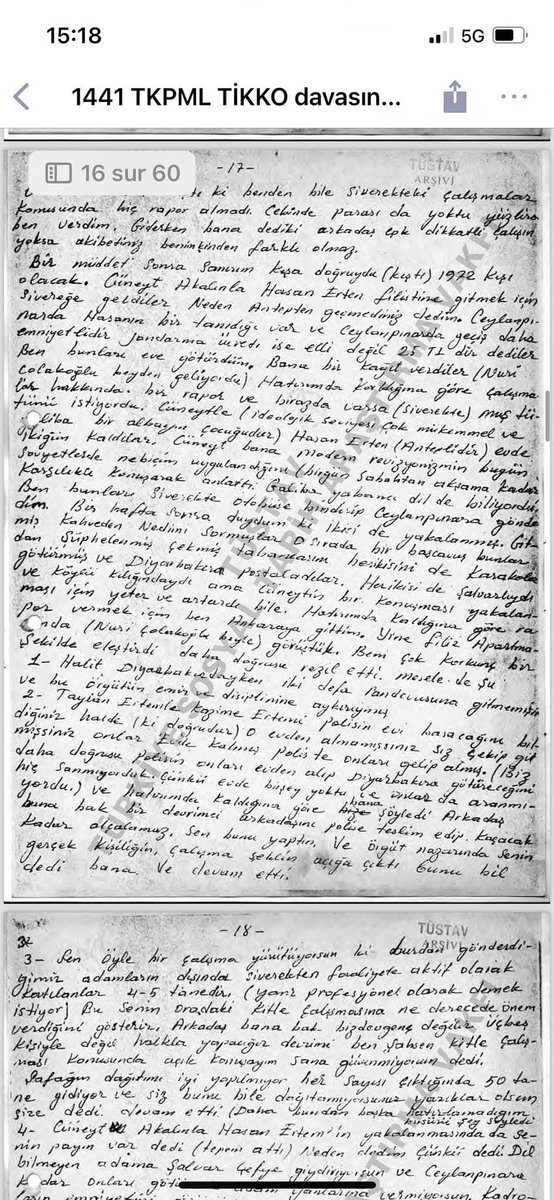 15:18
5G
1441 TKPML TİKKO davasın...
16 sur 60
-17-
TÜSTAV
ARŞİVİ
ki benden bile Siverekteki çalışmalar
konusunda hiç rapor almadı. Cebinde parası da yoktu yüz lira
ben verdim. Giderken bana dediki arkadaş çok dikkatli çalışın
yoksa akibetiniz benimkinden farklı olmaz.
Bir müddet sonra sanırım kışa doğruydu (kıştı) 1972 kışı
olacak. Cüneyt Akalınla Hasan Erten filistine gitmek için
Sivereğe geldiler Neden Antepten geçmediniz dedim. Ceylanpı-
narda Hasanın bir tanıdığı var ve Ceylanpınarda geçiş daha
emniyetlidir Jandarma ücreti ise elli değil 25 TL dür dediler
Ben bunları eve götürdüm. Bana bir kağıt verdiler (Nuri
Çolakoğlu beyden geliyordu) Hatırımda kaldığına göre çalışma-
lar hakkında bir rapor ve birazda varsa (Siverekte) muş tü-
tünü istiyordu. Cüneytle (ideolojik seviyesi çok mükemmel ve
galiba bir albayın çocuğudur) Hasan Erten (Anteplidir) evde
iki gün kaldılar. Cüneyt bana modern revizyonizmin bugün
Sovyetlerde nebiçim uygulandığını (birgün sabahtan akşama kadar
Karşılıklı konuşarak anlattı. Galiba yabancı dil de biliyordu
Ben bunları Siverekte otobüse bindirip Ceylanpınara gönder-
dim. Bir hafta sonra duydum ki ikiside yakalanmış. Git-
miş kahveden Nedini sormuşlar O sırada bir başçavuş bunlar
dan şüphelenmiş çekmiş tabancasını herikisini de Karakola
götürmüş ve Diyarbakıra postaladılar. Herikisi de şalvarlıydı
ve köylü kılığındaydı ama Cüneytin bir konuşması yakalan-
ması için yeter ve artardı bile. Hatırımda kaldığına göre ra-
por vermek için ben Ankaraya gittim. Yine filiz Apartma-
nında (Nuri Çolakoğlu beyle) görüştük. Beni çok korkunç bir
şekilde eleştirdi daha doğrusu rezil etti. mesele de şu
1- Halit Diyarbakırdayken iki defa randevusuna gitmemişsin
ve bu örgütün emir ve disiplinine aykırıymış
2- Taylan Ertenile Kazime Ertemi polisin evi basacağını bil-
diğiniz halde (ki doğrudur) O evden almamışsınız Siz çekip git
mişsiniz onlar Evde kalmış poliste onları gelip almış. (Biz
daha doğrusu polisin onları evden alıp Diyarbakıra götüreceğini
hiç sanmıyorduk. Çünkü evde birşey yoktu ve onlar da aranmı-
yordu.) ve hatırımda kaldığına göre bana şöyledi Arkadaş
buna bak bir devrimci arkadaşını polise teslim edip kaçacak
kadar alçalamaz. Sen bunu yaptın. Ve örgüt nazarında senin
gerçek kişiliğin, çalışma şeklin açığa çıktı bunu bil
dedi bana. Ve devam etti.
-18-
TÜSTAV
ARŞİVİ
3- Sen öyle bir çalışma yürütüyorsun ki burdan gönderdi-
ğimiz adamların dışında Siverekten faaliyete aktif olarak
Katılanlar 4-5 tanedir. (yani profesyonel olarak demek
istiyor) Bu senin oradaki kitle çalışmasına ne derecede önem
verdiğini gösterir. Arkadaş bana bak biz devgenç değiliz Üçbeş
kişiyle değil halkla yapacağız devrimi ben şahsen kitle çalış-
ması konusunda açık konuşayım sana güvenmiyorum dedi.
Şafağın dağıtımı iyi yapılmıyor her sayısı çıktığında 50 ta-
ne gidiyor ve siz bunu bile dağıtamıyorsunuz yazıklar olsun
size dedi. devam etti (Daha bundan başka hatırlamadığım
hususu şey söyledi
4- Cüneyt Akalınla Hasan Erten'in yakalanmasında da se-
nin payın var dedi (tepem attı) Neden dedim Çünkü dedi Dil
bilmeyen adama şalvar çefye giydiriyorsun ve Ceylanpınara
Kadar onları